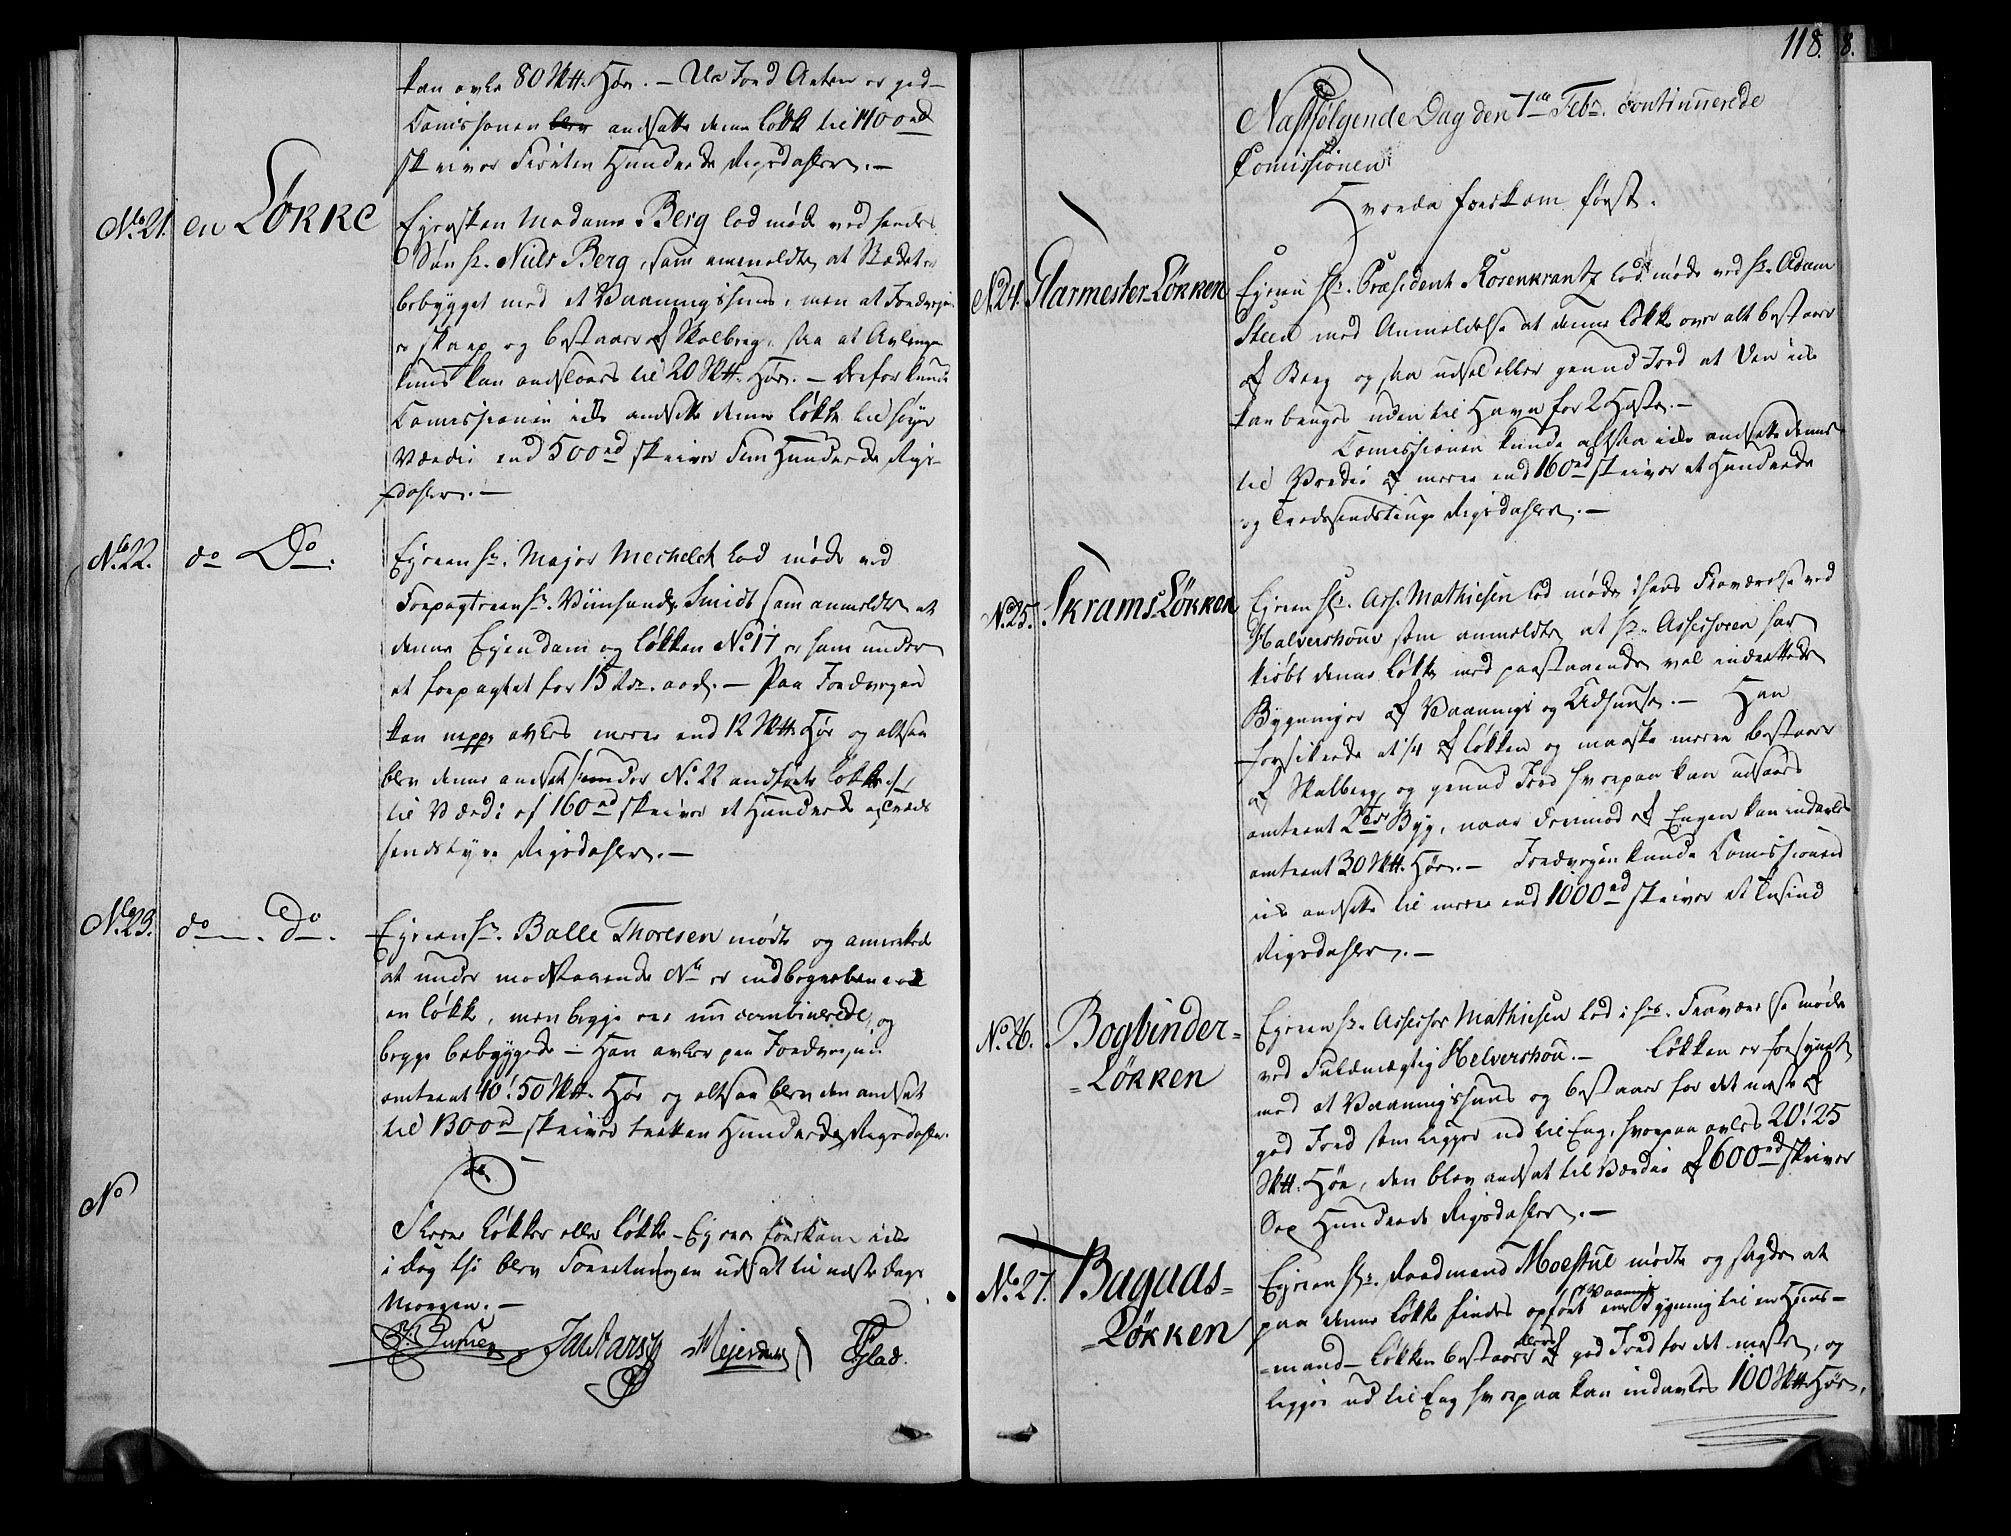 kan avles 80 Sktt. Høe. – Da Jord Arten er god
Comissionen blev andsatte denne løkk til 1400 rd
skriver Fiorten Hunderde Rigsdahler. –
No. 21. en LØKKE
Eyersken Madame Berg lod møde ved hendes
Søn Hr. Niels Berg, som anmeldte at Stædet er
bebygget med et Vaaningshuus, men at Jordveyen
er skarp og bestaaer af Skalberg, saa at Avlingen
kuns kan andslaaes til 20 Sktt. Høe. – Derfor kunde
Comissionen icke andsette denne løkke til høyer
Værdie end 500 rd skriver Fem Hunderde Rigs-
daler. –
No. 22. do Do.
Eyeren Hr. Major Mechelet lod møde ved
Forpagteren Hr. Smidt som anmeldte at
denne Eyendom og løkken No 17 er ham under
et forpagtet for 15 Rdr. aarl. – Paa Jordveyen
kan neppe avles meere end 12 Sktt. Høe og altsaa
blev denne andsat /: under No. 22 andførte løkke :/
til Værdi af 160 rd skriver et Hunderde og Treds
sindstyve Rigsdahler. –
No. 23. do. do.
Eyeren Hr. Balle Thoresen mødte og anmerkede
at under modstaaende No. er indbegreben
en løkke, men begge ere nu combinerede, og
begge bebyggede – Han avler paa Jordveyen
omtrent 40 à 50 Sktt. Høe og altsaa blev den andsat
til 1300 rd skriver tretten Hunderde Rigsdaler.
No
Fleere løkker eller løkke-Eyere fremkom icke
i dag thi blev Forretningen udsat til næste dags
Morgen. –
Flad.
118.
Næstfølgende Dag den 7de Febr. continuerede
Comissionen
Hvorda fremkom først.
No. 24. Glarmester-Løkken
Eyeren Hr. Præsident Rosenkrantz lod møde ved Hr. Adam
Steen med Anmeldelse at denne løkke over alt bestaaer
af Berg og saa udsel eller grund Jord at den icke
kan bruges uden til Havn for 2 Heste. –
Comissionen kunde altsaa icke andsette denne
til Verdie af meere end 160 rd skriver et Hunderde
og Tredssindstiuge Rigsdahler. –
No. 25. Skrams Løkken
Eyeren Hr. Ass. Mathiesen lod møde i hans Fraværelse ved
Halvershoue som anmeldte at Hr. Assessoren har
kiøbt denne løkke med paastaaende vel indrettede
Bygninger af Vaanings og Udhuuse. – Han
forsikrede at 1/4 af løkken og maaske meere bestaaer
af Skalberg og grund Jord hvorpaa kan udsaaes
omtrent 2 Tdr. Byg, naar derimod af Engen kan indavles
omtrent 30 Sktt. Høe. – Jordveyen kunde Comissionen
icke andsette til meere end 1000 rd skriver et Tusind
Rigsdahler. –
No. 26. Bogbinder-
-Løkken
Eyeren Hr. Assessor Mathiesen lod i hs. Fraværelse møde
ved Fuldmægtig Helvershou. – løkken er forsynet
med et Vaaningshuus og bestaaer for det meste af
god Jord som ligger ud til Eng, hvorpaa avles 20 à 25
Sktt. Høe, den blev andsat til Værdie af 600 rd skriver
Sex Hunderde Rigsdahler. –
No. 27. Bagaas-
-Løkken
Eyeren Hr. Raadmand Moestue mødte og sagde at
paa denne løkke findes opført en Vaanings Bygning til en Huus-
-mand – løkken bestaaer deels af god Jord for det meste, og
ligger ud til Eng hvorpaa kan indavles 100 Sktt. Høe,